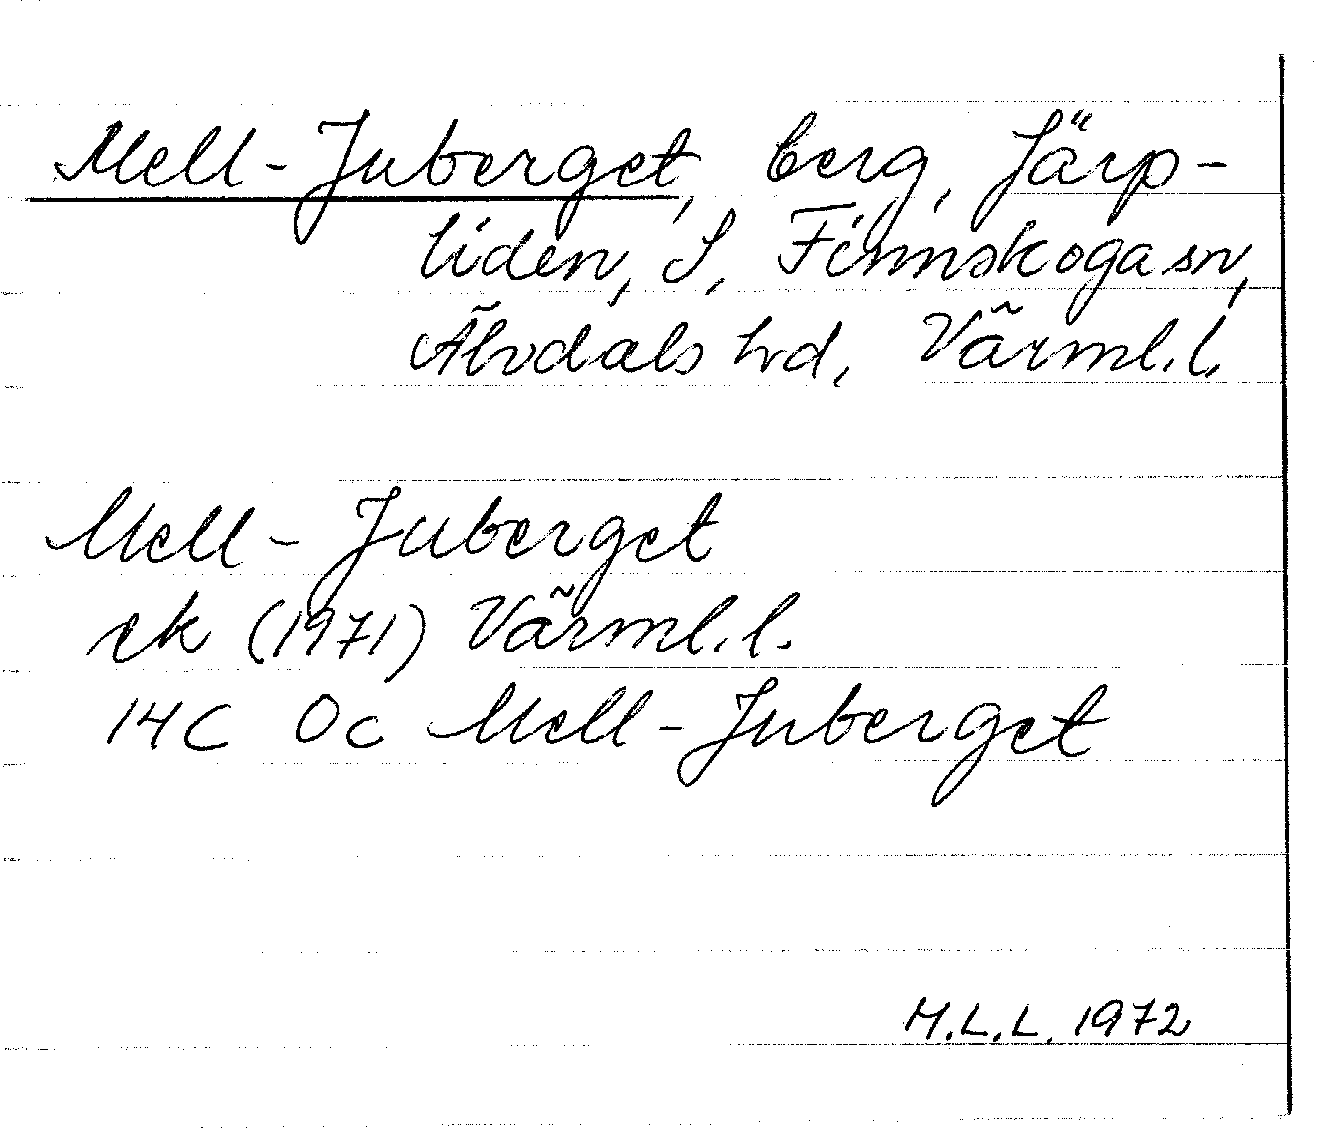 Mell-Juberget, berg, Järp-
liden, S, Finnskoga sn,
Älvdals hd, Värml.l.
Mell-Juberget
ek (1971) Värml.l.
14C 0c Mell-Juberget
M.L.L. 1972